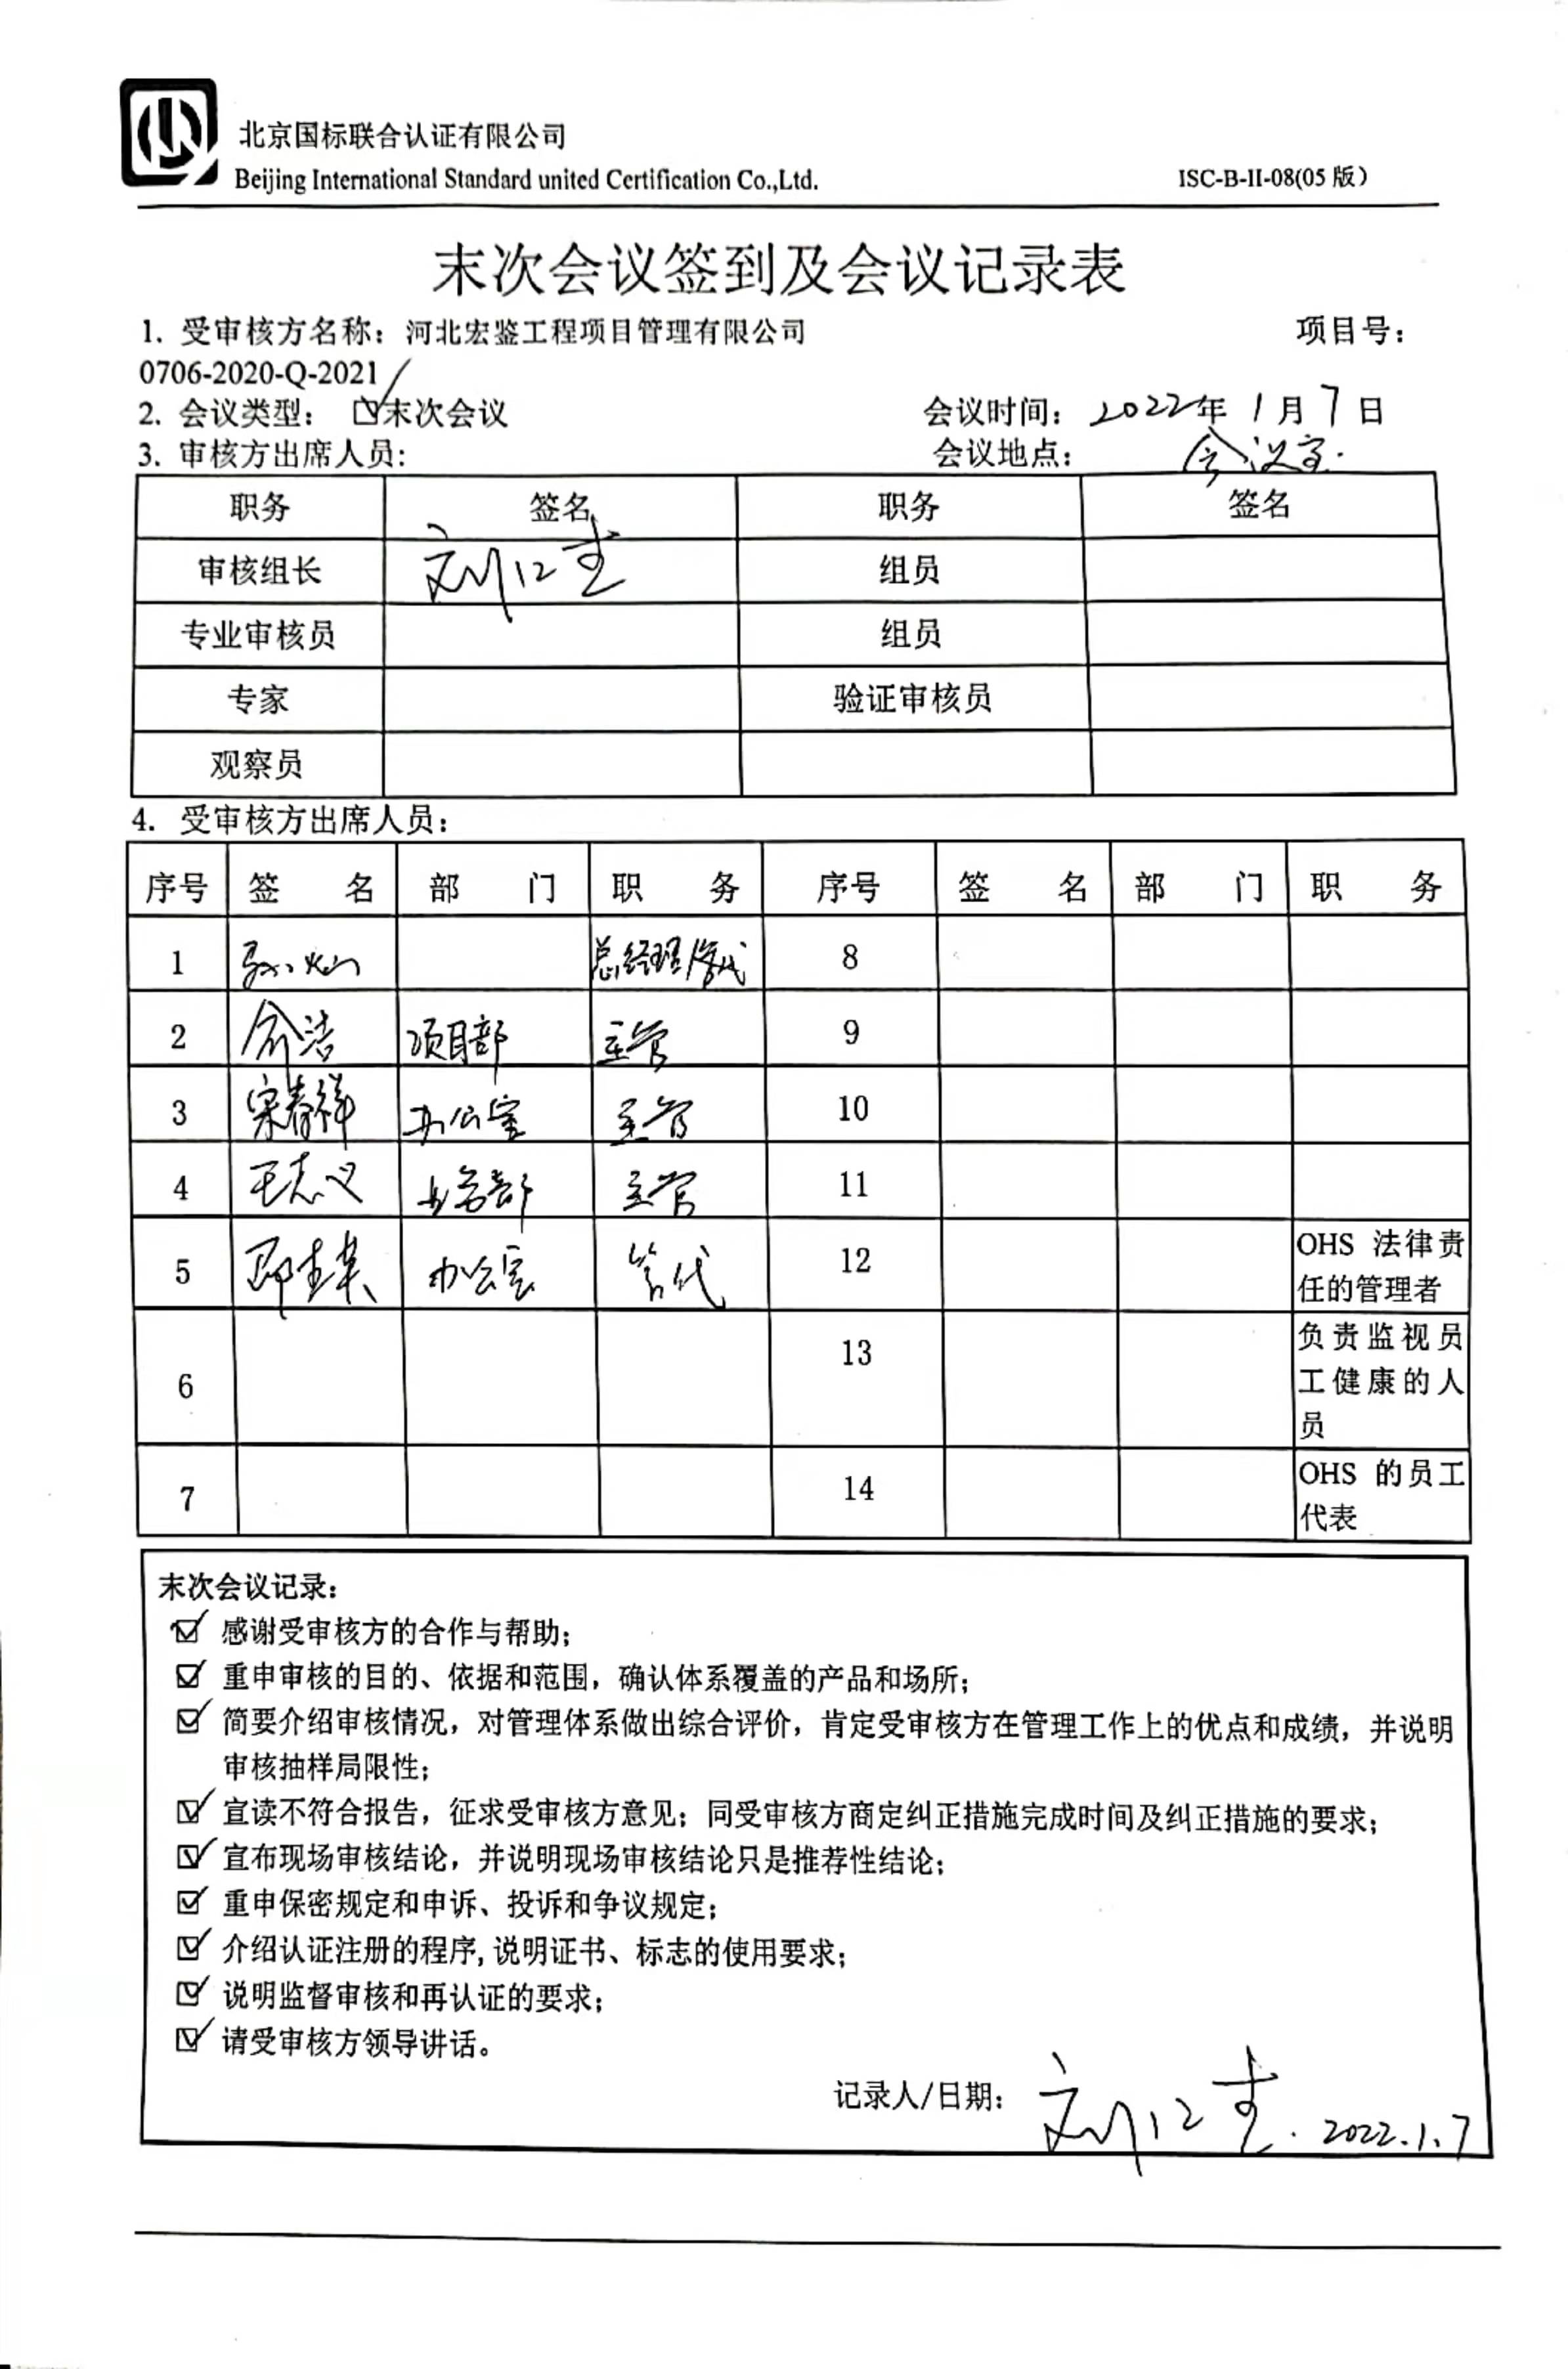 北京国标联合认证有限公司
Beijing International Standard united Certification Co.,Ltd.
ISC-B-II-08(05 版)
末次会议签到及会议记录表
1. 受审核方名称：河北宏鉴工程项目管理有限公司 项目号：
0706-2020-Q-2021
2. 会议类型： ☑末次会议 会议时间：2022年 1 月 7 日
3. 审核方出席人员： 会议地点： 会议室.
职务 签名 职务 签名
审核组长 组员
专业审核员 组员
专家 验证审核员
观察员
4. 受审核方出席人员：
序号 签 名 部 门 职 务 序号 签 名 部 门 职 务
1 总经理/管代 8
2 俞浩 项目部 主管 9
3 宋春祥 办公室 主管 10
4 王志义 业务部 主管 11
5 办公室 管代 12 OHS 法律责
任的管理者
6 13 负责监视员
工健康的人
员
7 14 OHS 的员工
代表
末次会议记录：
☑ 感谢受审核方的合作与帮助；
☑ 重申审核的目的、依据和范围，确认体系覆盖的产品和场所；
☑ 简要介绍审核情况，对管理体系做出综合评价，肯定受审核方在管理工作上的优点和成绩，并说明
审核抽样局限性；
☑ 宣读不符合报告，征求受审核方意见；同受审核方商定纠正措施完成时间及纠正措施的要求；
☑ 宣布现场审核结论，并说明现场审核结论只是推荐性结论；
☑ 重申保密规定和申诉、投诉和争议规定；
☑ 介绍认证注册的程序,说明证书、标志的使用要求；
☑ 说明监督审核和再认证的要求；
☑ 请受审核方领导讲话。
记录人/日期： 2022.1.7